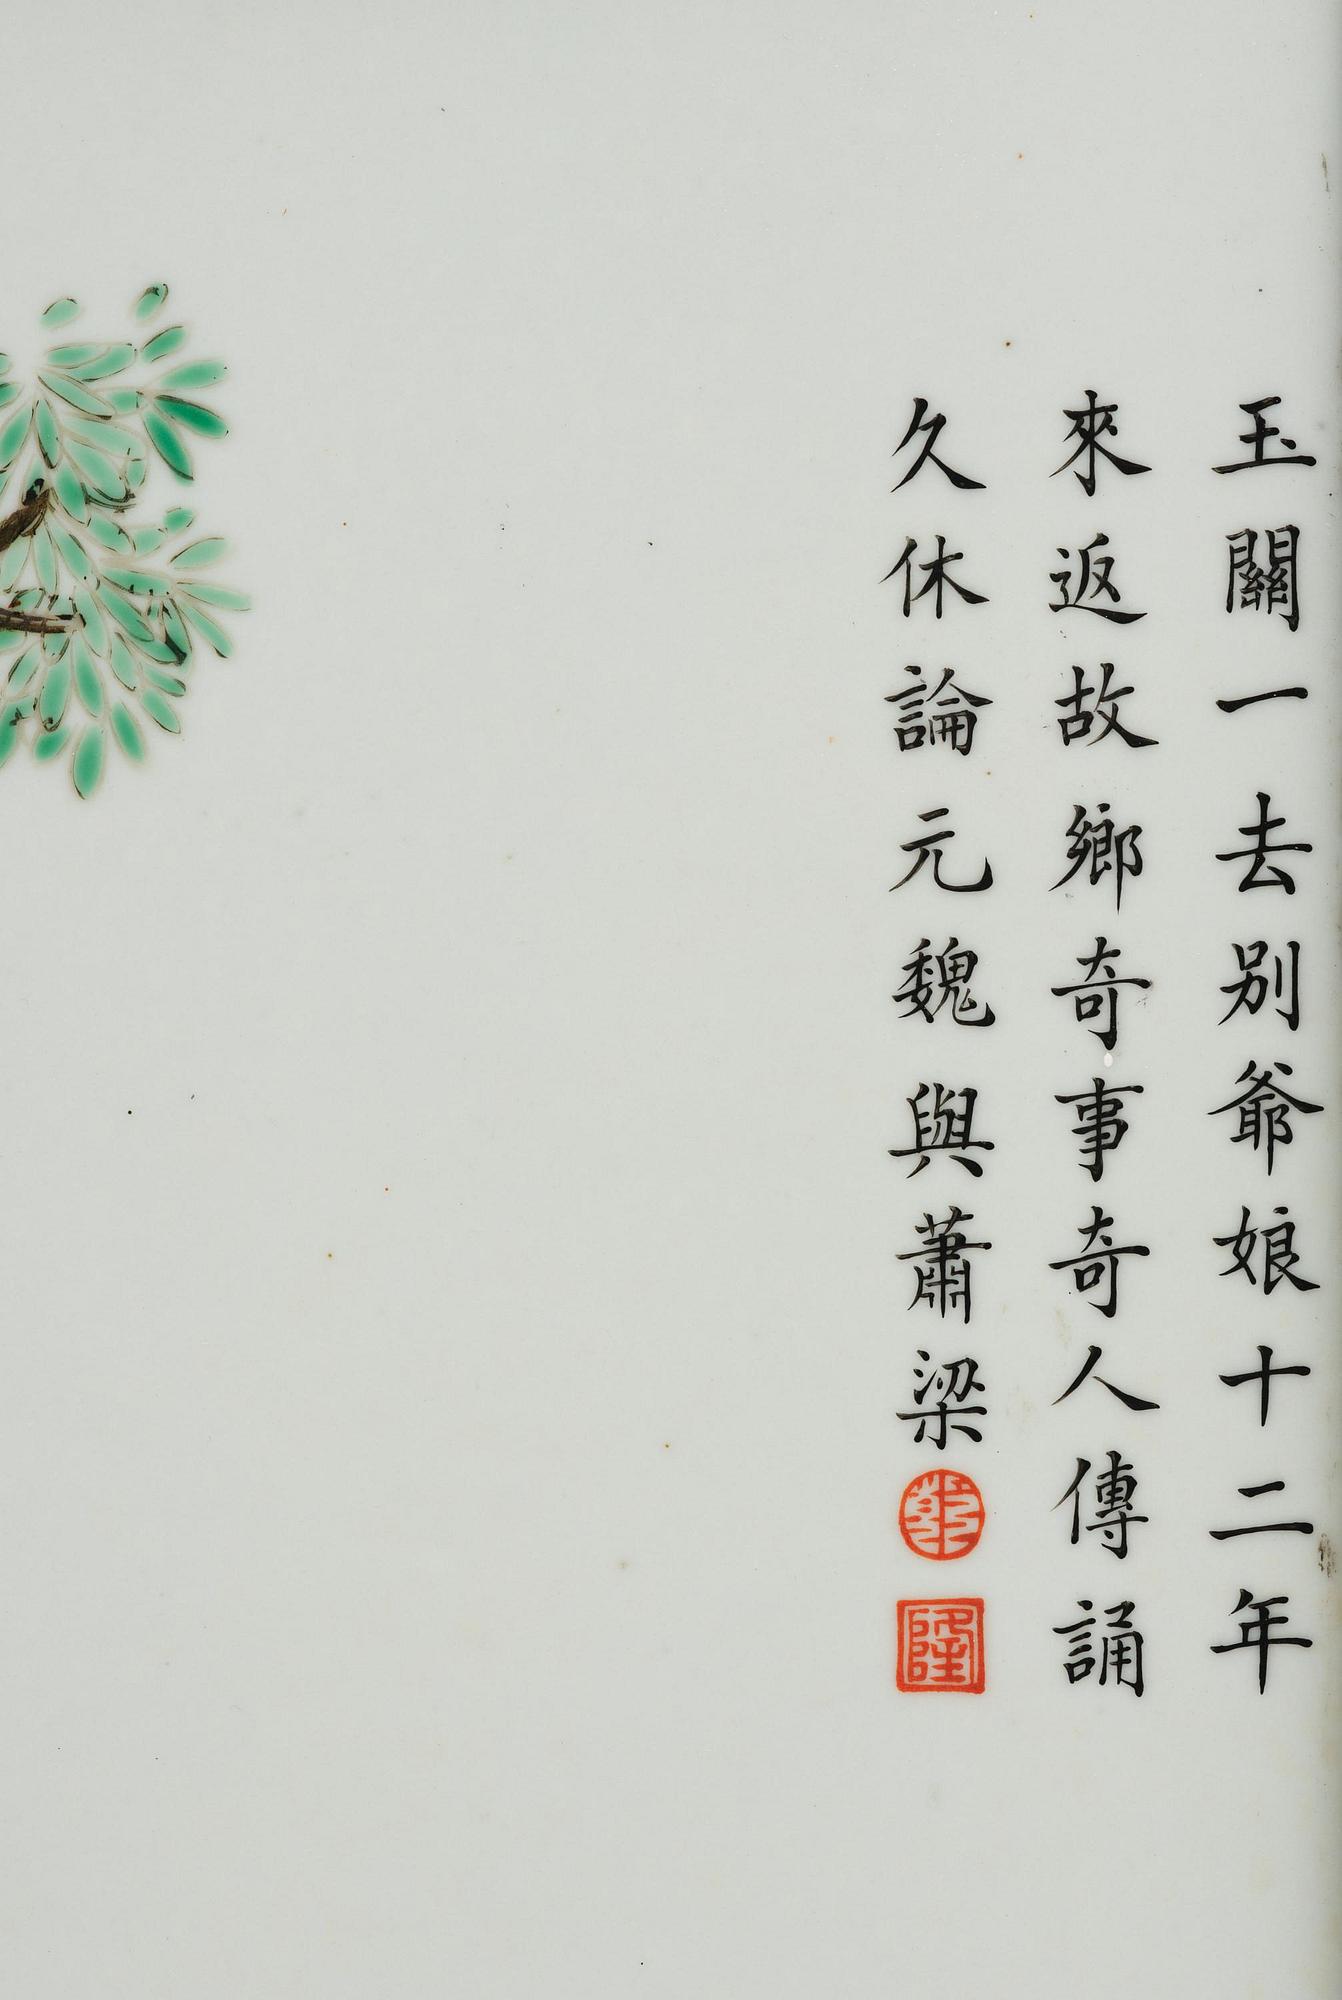 玉關一去別爺娘十二年
來返故鄉奇事奇人傳誦
久休論元魏與蕭梁
乾
隆